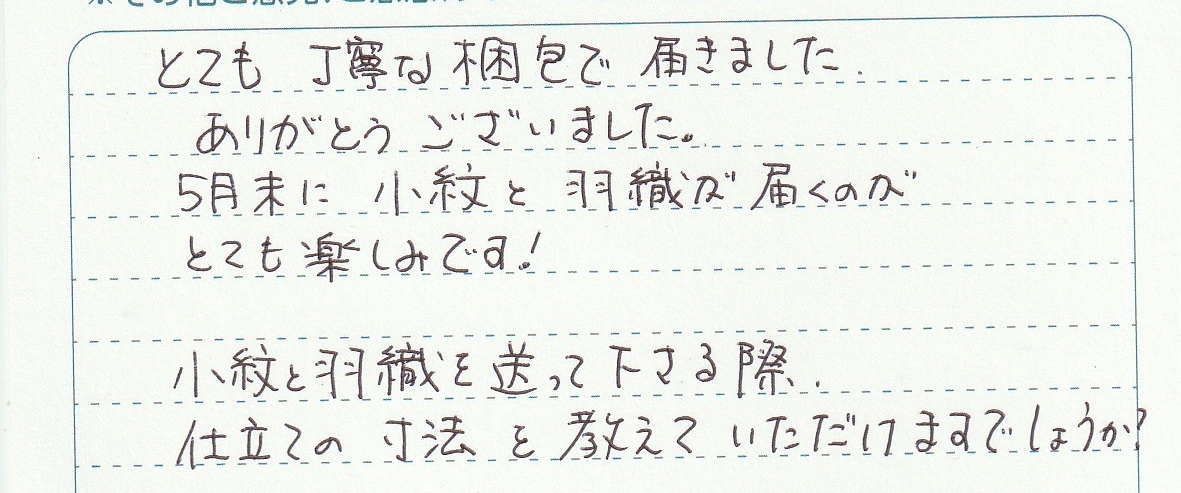 とても 丁寧な 梱包で 届きました.
ありがとう ございました。
5月末に 小紋と 羽織が 届くのが
とても 楽しみです!
小紋と羽織を送って下さる際.
仕立ての 寸法 を 教えて いただけますでしょうか?